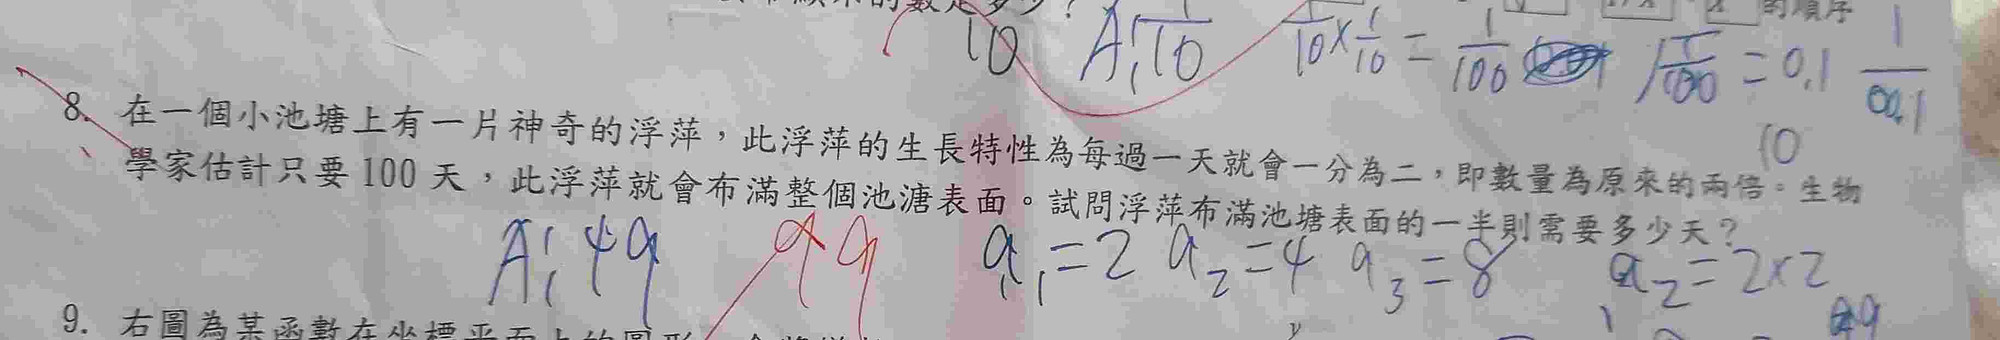 的數是多少？
的順序
10 A:1/10 1/10×1/10=1/100 √1/100=0.1 1/00.1
10
8. 在一個小池塘上有一片神奇的浮萍，此浮萍的生長特性為每過一天就會一分為二，即數量為原來的兩倍。生物
學家估計只要 100 天，此浮萍就會布滿整個池溏表面。試問浮萍布滿池塘表面的一半則需要多少天？
A: 49 99 a₁=2 a₂=4 a₃=8 a₂=2×2
9. 右圖為某函數在坐標平面上的圖形